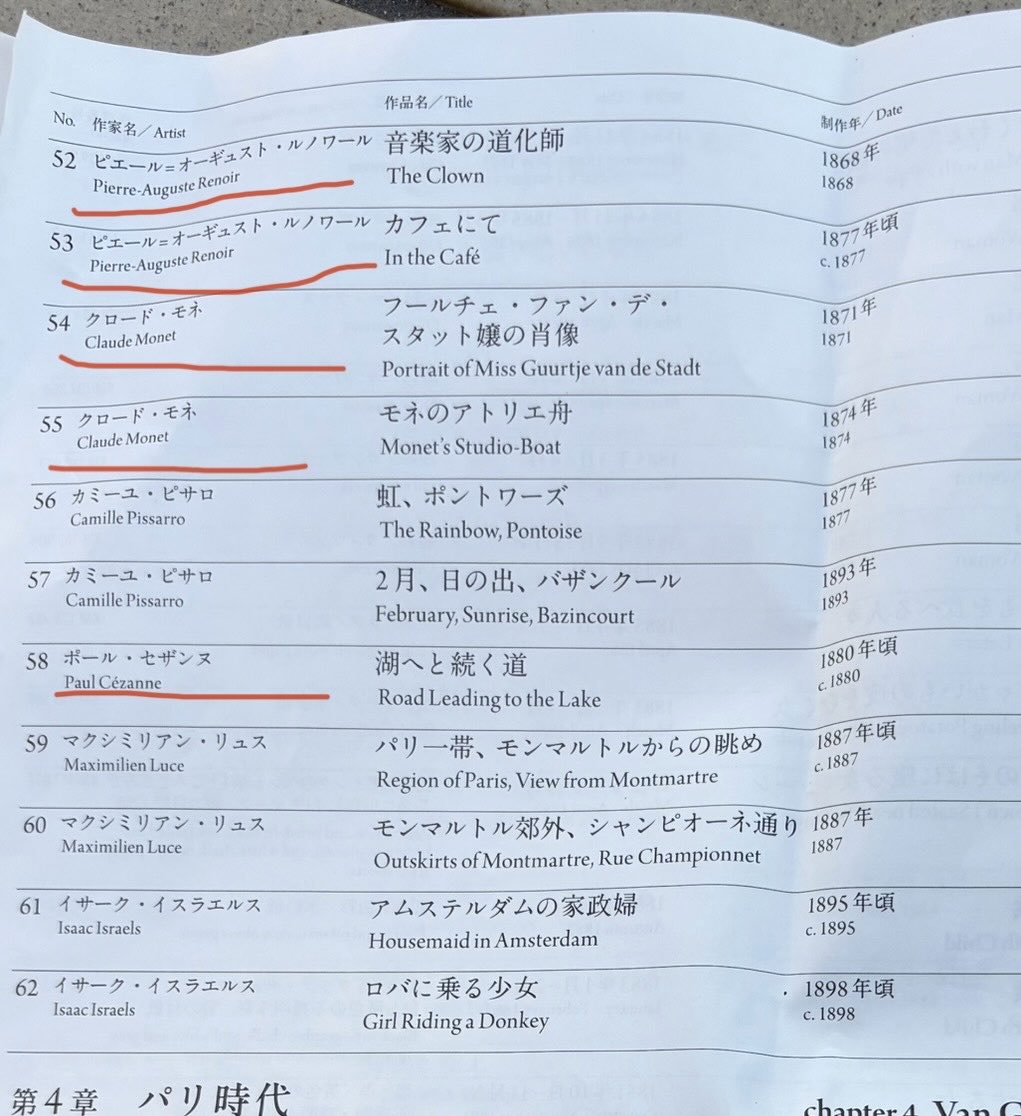 No. 作家名／Artist 作品名／Title 制作年／Date
52 ピエール＝オーギュスト・ルノワール 音楽家の道化師 1868年
Pierre-Auguste Renoir The Clown 1868
53 ピエール＝オーギュスト・ルノワール カフェにて 1877年頃
Pierre-Auguste Renoir In the Café c. 1877
54 クロード・モネ フールチェ・ファン・デ・ 1871年
スタット嬢の肖像
Claude Monet Portrait of Miss Guurtje van de Stadt 1871
55 クロード・モネ モネのアトリエ舟 1874年
Claude Monet Monet's Studio-Boat 1874
56 カミーユ・ピサロ 虹、ポントワーズ 1877年
Camille Pissarro The Rainbow, Pontoise 1877
57 カミーユ・ピサロ 2月、日の出、バザンクール 1893年
Camille Pissarro February, Sunrise, Bazincourt 1893
58 ポール・セザンヌ 湖へと続く道 1880年頃
Paul Cézanne Road Leading to the Lake c. 1880
59 マクシミリアン・リュス パリ一帯、モンマルトルからの眺め 1887年頃
Maximilien Luce Region of Paris, View from Montmartre c. 1887
60 マクシミリアン・リュス モンマルトル郊外、シャンピオーネ通り 1887年
Maximilien Luce Outskirts of Montmartre, Rue Championnet 1887
61 イサーク・イスラエルス アムステルダムの家政婦 1895年頃
Isaac Israels Housemaid in Amsterdam c. 1895
62 イサーク・イスラエルス ロバに乗る少女 1898年頃
Isaac Israels Girl Riding a Donkey c. 1898
第4章 パリ時代 chapter 4 Van